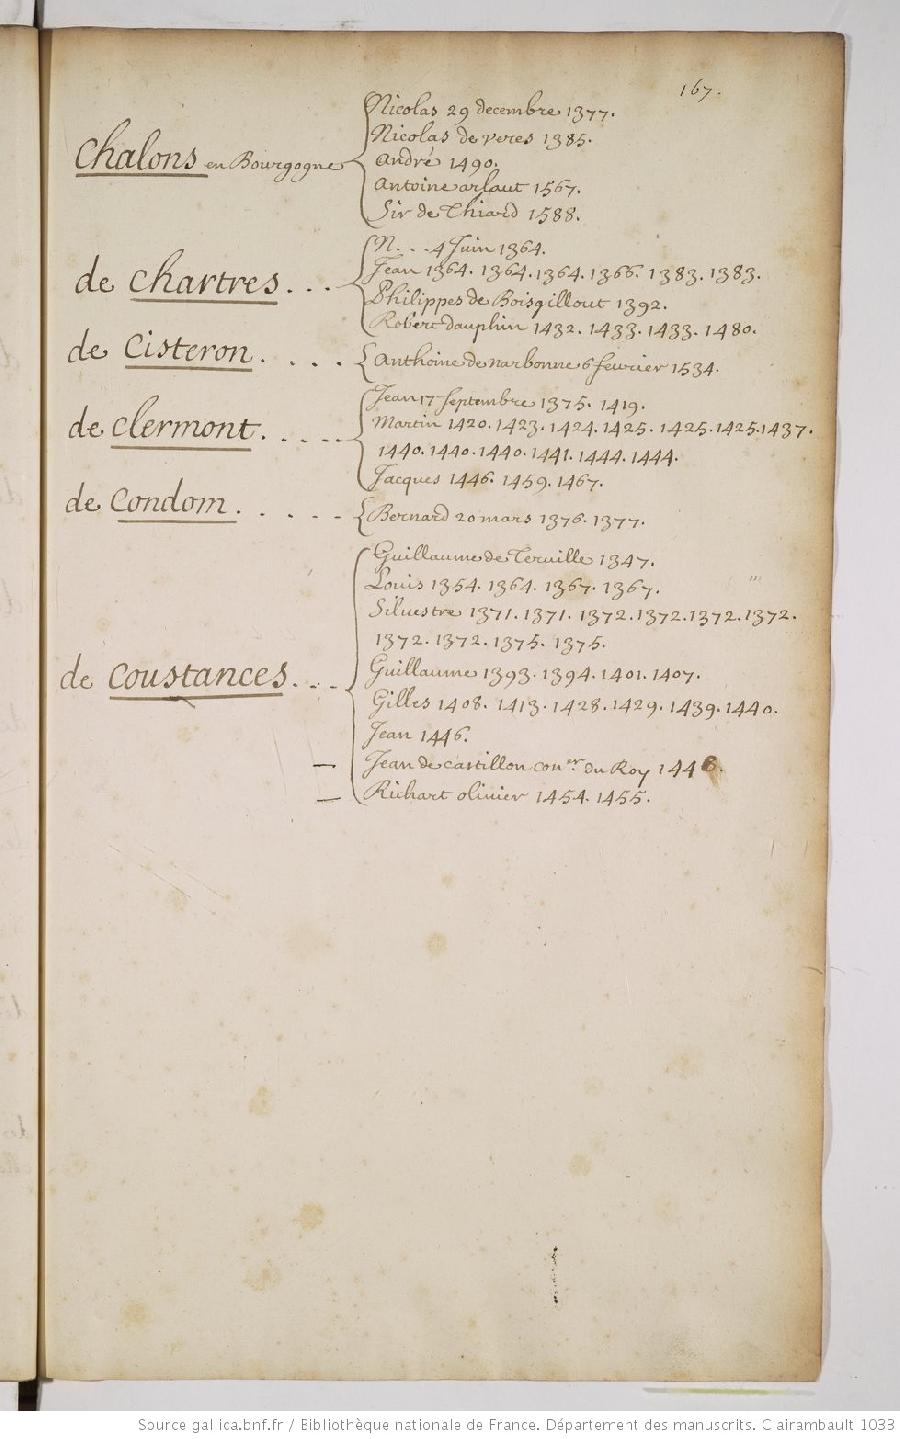 167.
Chalons en Bourgogne
Nicolas 29 decembre 1377.
Nicolas de veres 1385.
André 1490.
Antoine arlaut 1567.
Sir de Thiard 1588.
de Chartres. . .
N. . . 4 Juin 1364.
Jean 1364. 1364. 1364. 1366. 1383. 1383.
Philippes de Boisgillout 1392.
Robert dauphin 1432. 1433. 1433. 1480.
de Cisteron. . . . .
Anthoine de narbonne 6 feurier 1534.
de Clermont. . . . .
Jean 17 septembre 1375. 1419.
Martin 1420. 1423. 1424. 1425. 1425. 1425. 1437.
1440. 1440. 1440. 1441. 1444. 1444.
Jacques 1446. 1459. 1467.
de Condom. . . . .
Bernard 20 mars 1376. 1377.
de Coustances. . . .
Guillaume de Teruille 1347.
Louis 1354. 1364. 1367. 1367.
Siluestre 1371. 1371. 1372. 1372. 1372. 1372.
1372. 1372. 1375. 1375.
Guillaume 1393. 1394. 1401. 1407.
Gilles 1408. 1413. 1428. 1429. 1439. 1440.
Jean 1446.
— Jean de castillon con.er du Roy 1446.
— Richart oliuier 1454. 1455.
Source gallica.bnf.fr / Bibliothèque nationale de France. Département des manuscrits. Clairambault 1033